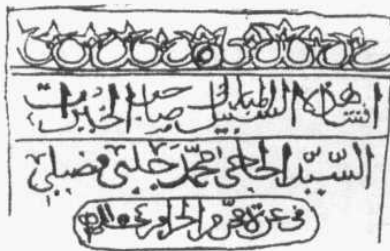 انشا هذا السبيل المبارك صاحب الخيرات
السيد الحاجي محمد جلبي فضيلي
في غرة محرم الحرام